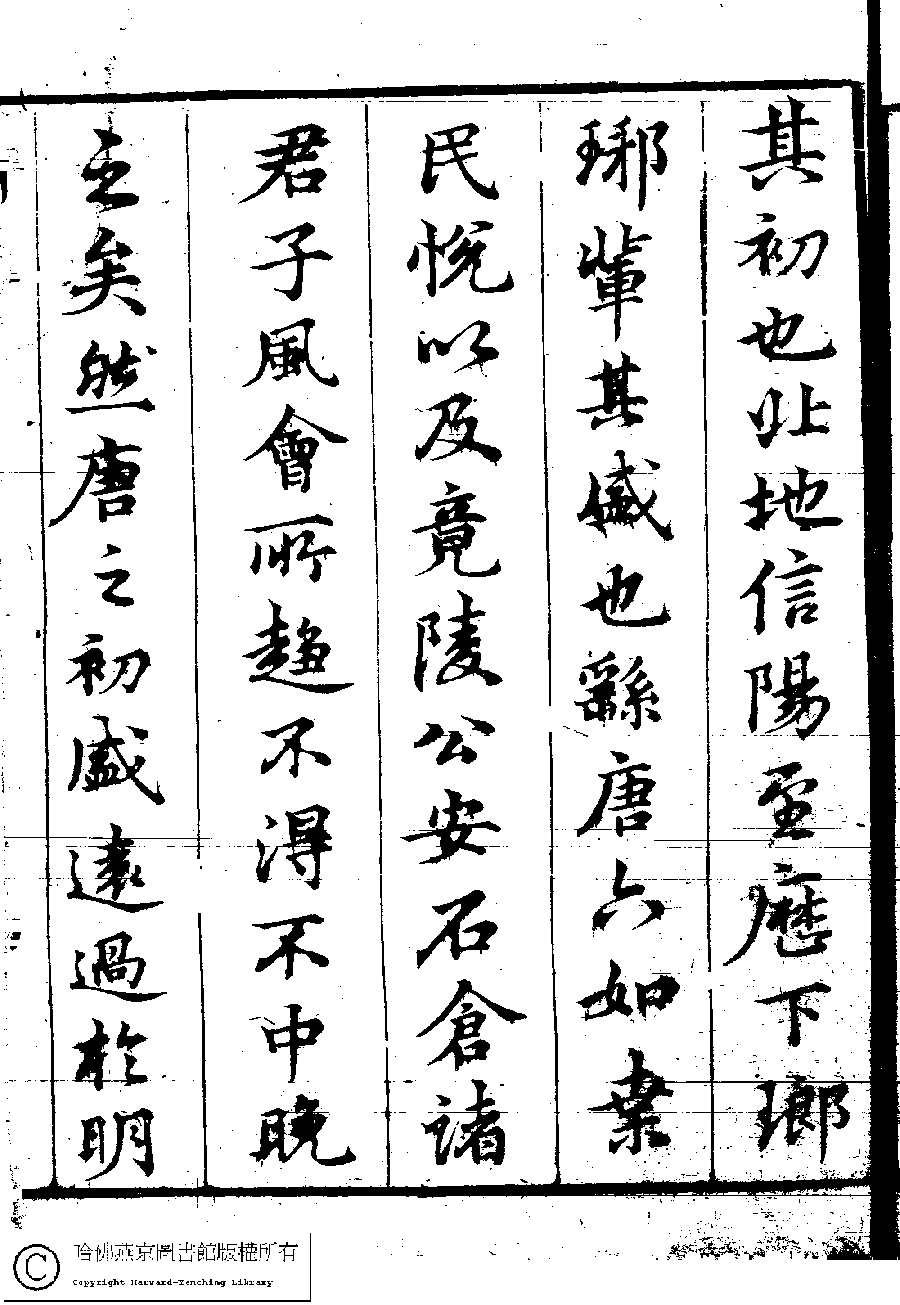 其初也北地信陽至歷下瑯
琊輩其盛也繇唐六如桑
民悅以及竟陵公安石倉諸
君子風會所趨不得不中晚
之矣然唐之初盛遠過於明
哈佛燕京圖書館版權所有
Copyright Harvard-Yenching Library